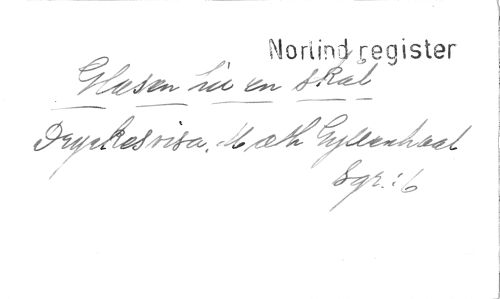 Norlind register
Glasen till en skål
Dryckesvisa. M och Gyllenhaal
Sgr.: 6